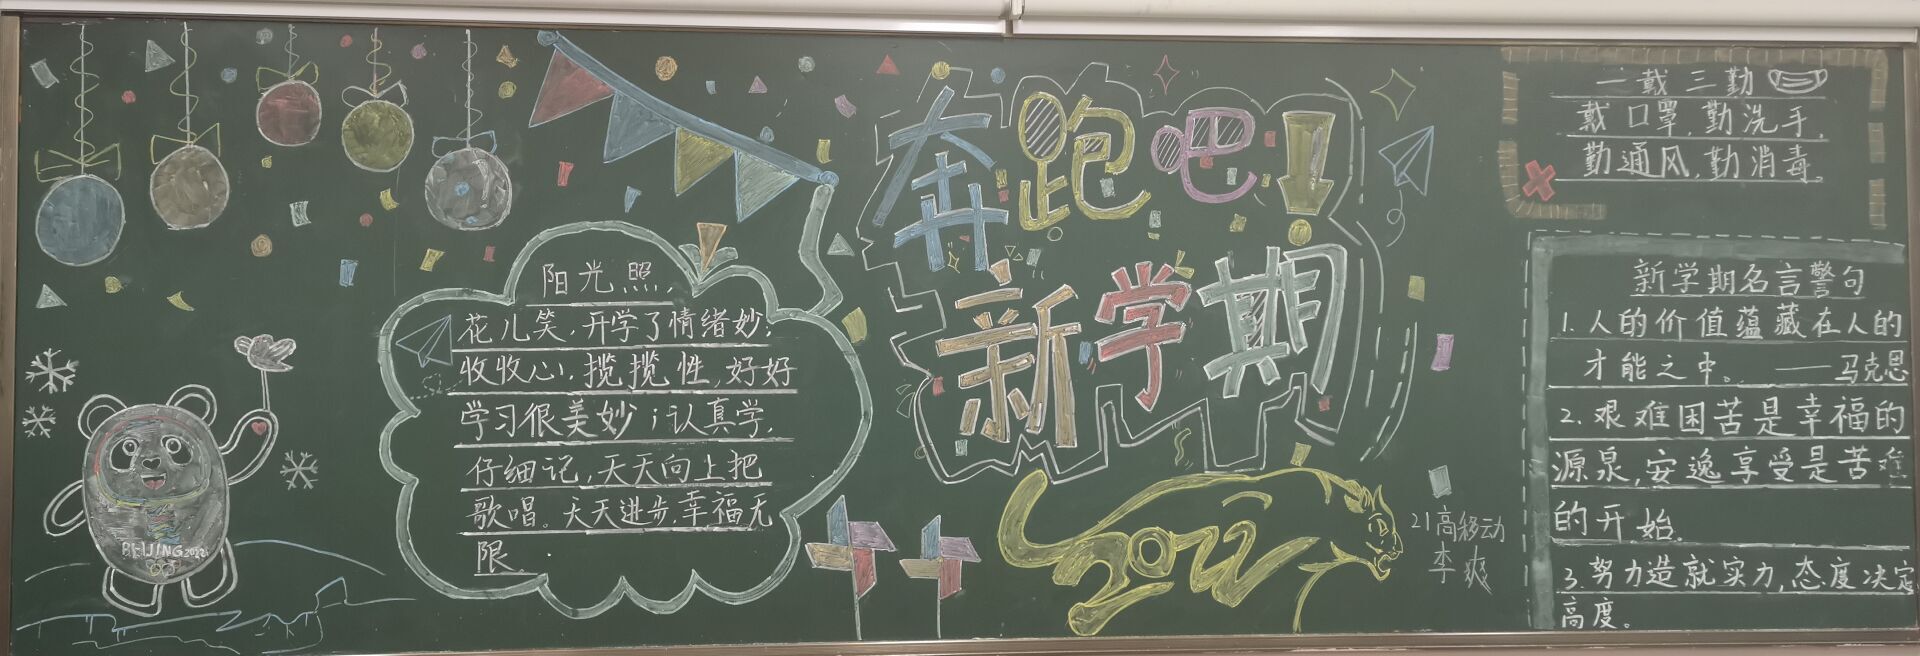 阳光照，
花儿笑，开学了情绪妙；
收收心，揽揽性，好好
学习很美妙；认真学，
仔细记，天天向上把
歌唱。天天进步，幸福无
限。
BEIJING 2022
奔跑吧！
新学期
2022
21高移动
李爽
一戴三勤
戴口罩，勤洗手，
勤通风，勤消毒。
新学期名言警句
1.人的价值蕴藏在人的
才能之中。——马克思
2.艰难困苦是幸福的
源泉，安逸享受是苦难
的开始.
3.努力造就实力，态度决定
高度。